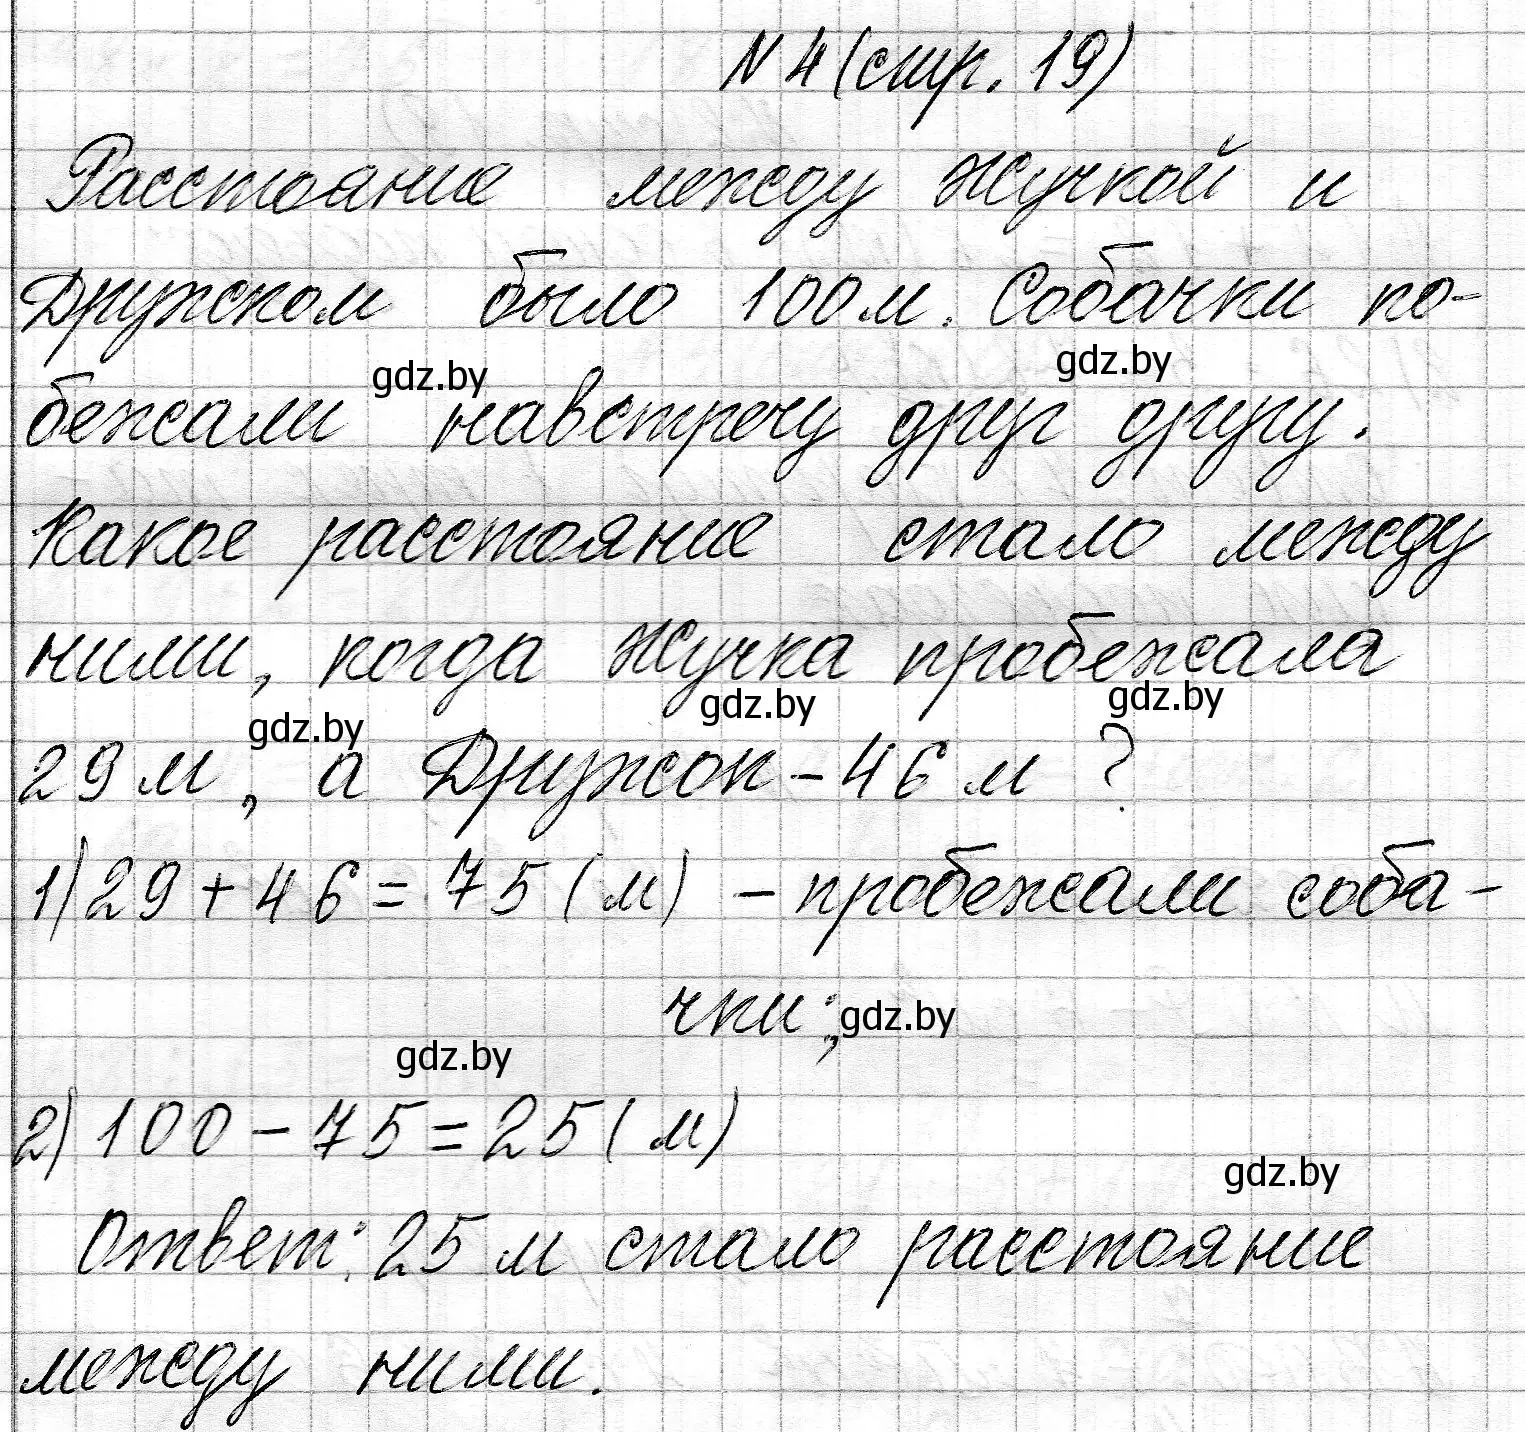 N 4 (стр. 19)
Расстояние между Жучкой и
Дружком было 100 м. Собачки по-
gdz.by gdz.by
бежали навстречу друг другу.
Какое расстояние стало между
ними, когда Жучка пробежала
gdz.by gdz.by gdz.by
29 м, а Дружок – 46 м?
1) 29 + 46 = 75 (м) – пробежали соба-
чки; gdz.by
gdz.by
2) 100 – 75 = 25 (м)
gdz.by
Ответ: 25 м стало расстояние
между ними.